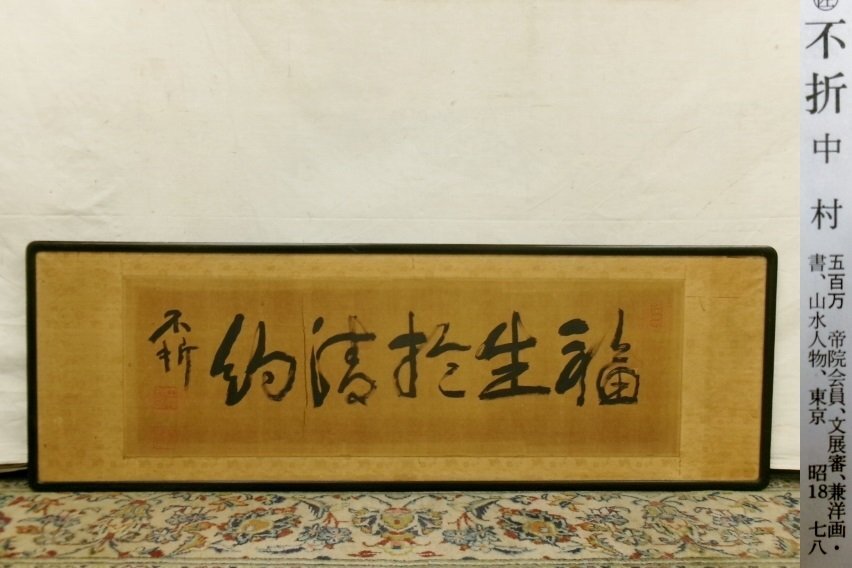 福生於清約
不折
不折 中村
五百万 帝院会員、文展審、兼洋画・
書、山水人物、東京 昭18 七八